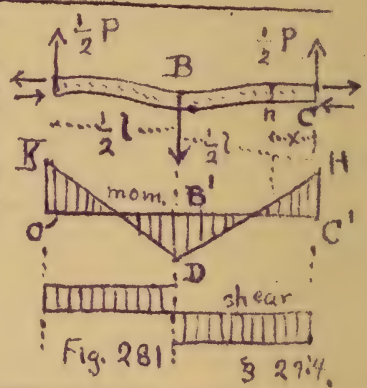 ½ P ½ P
B
n C
½ l ½ l x
K H
mom. B'
O' C'
D
shear
Fig. 281 § 274.